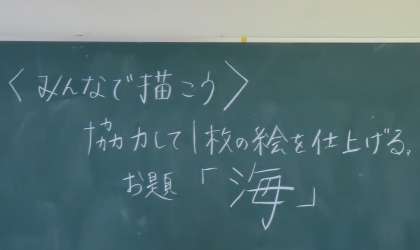 〈みんなで描こう〉
協力して1枚の絵を仕上げる。
お題「海」